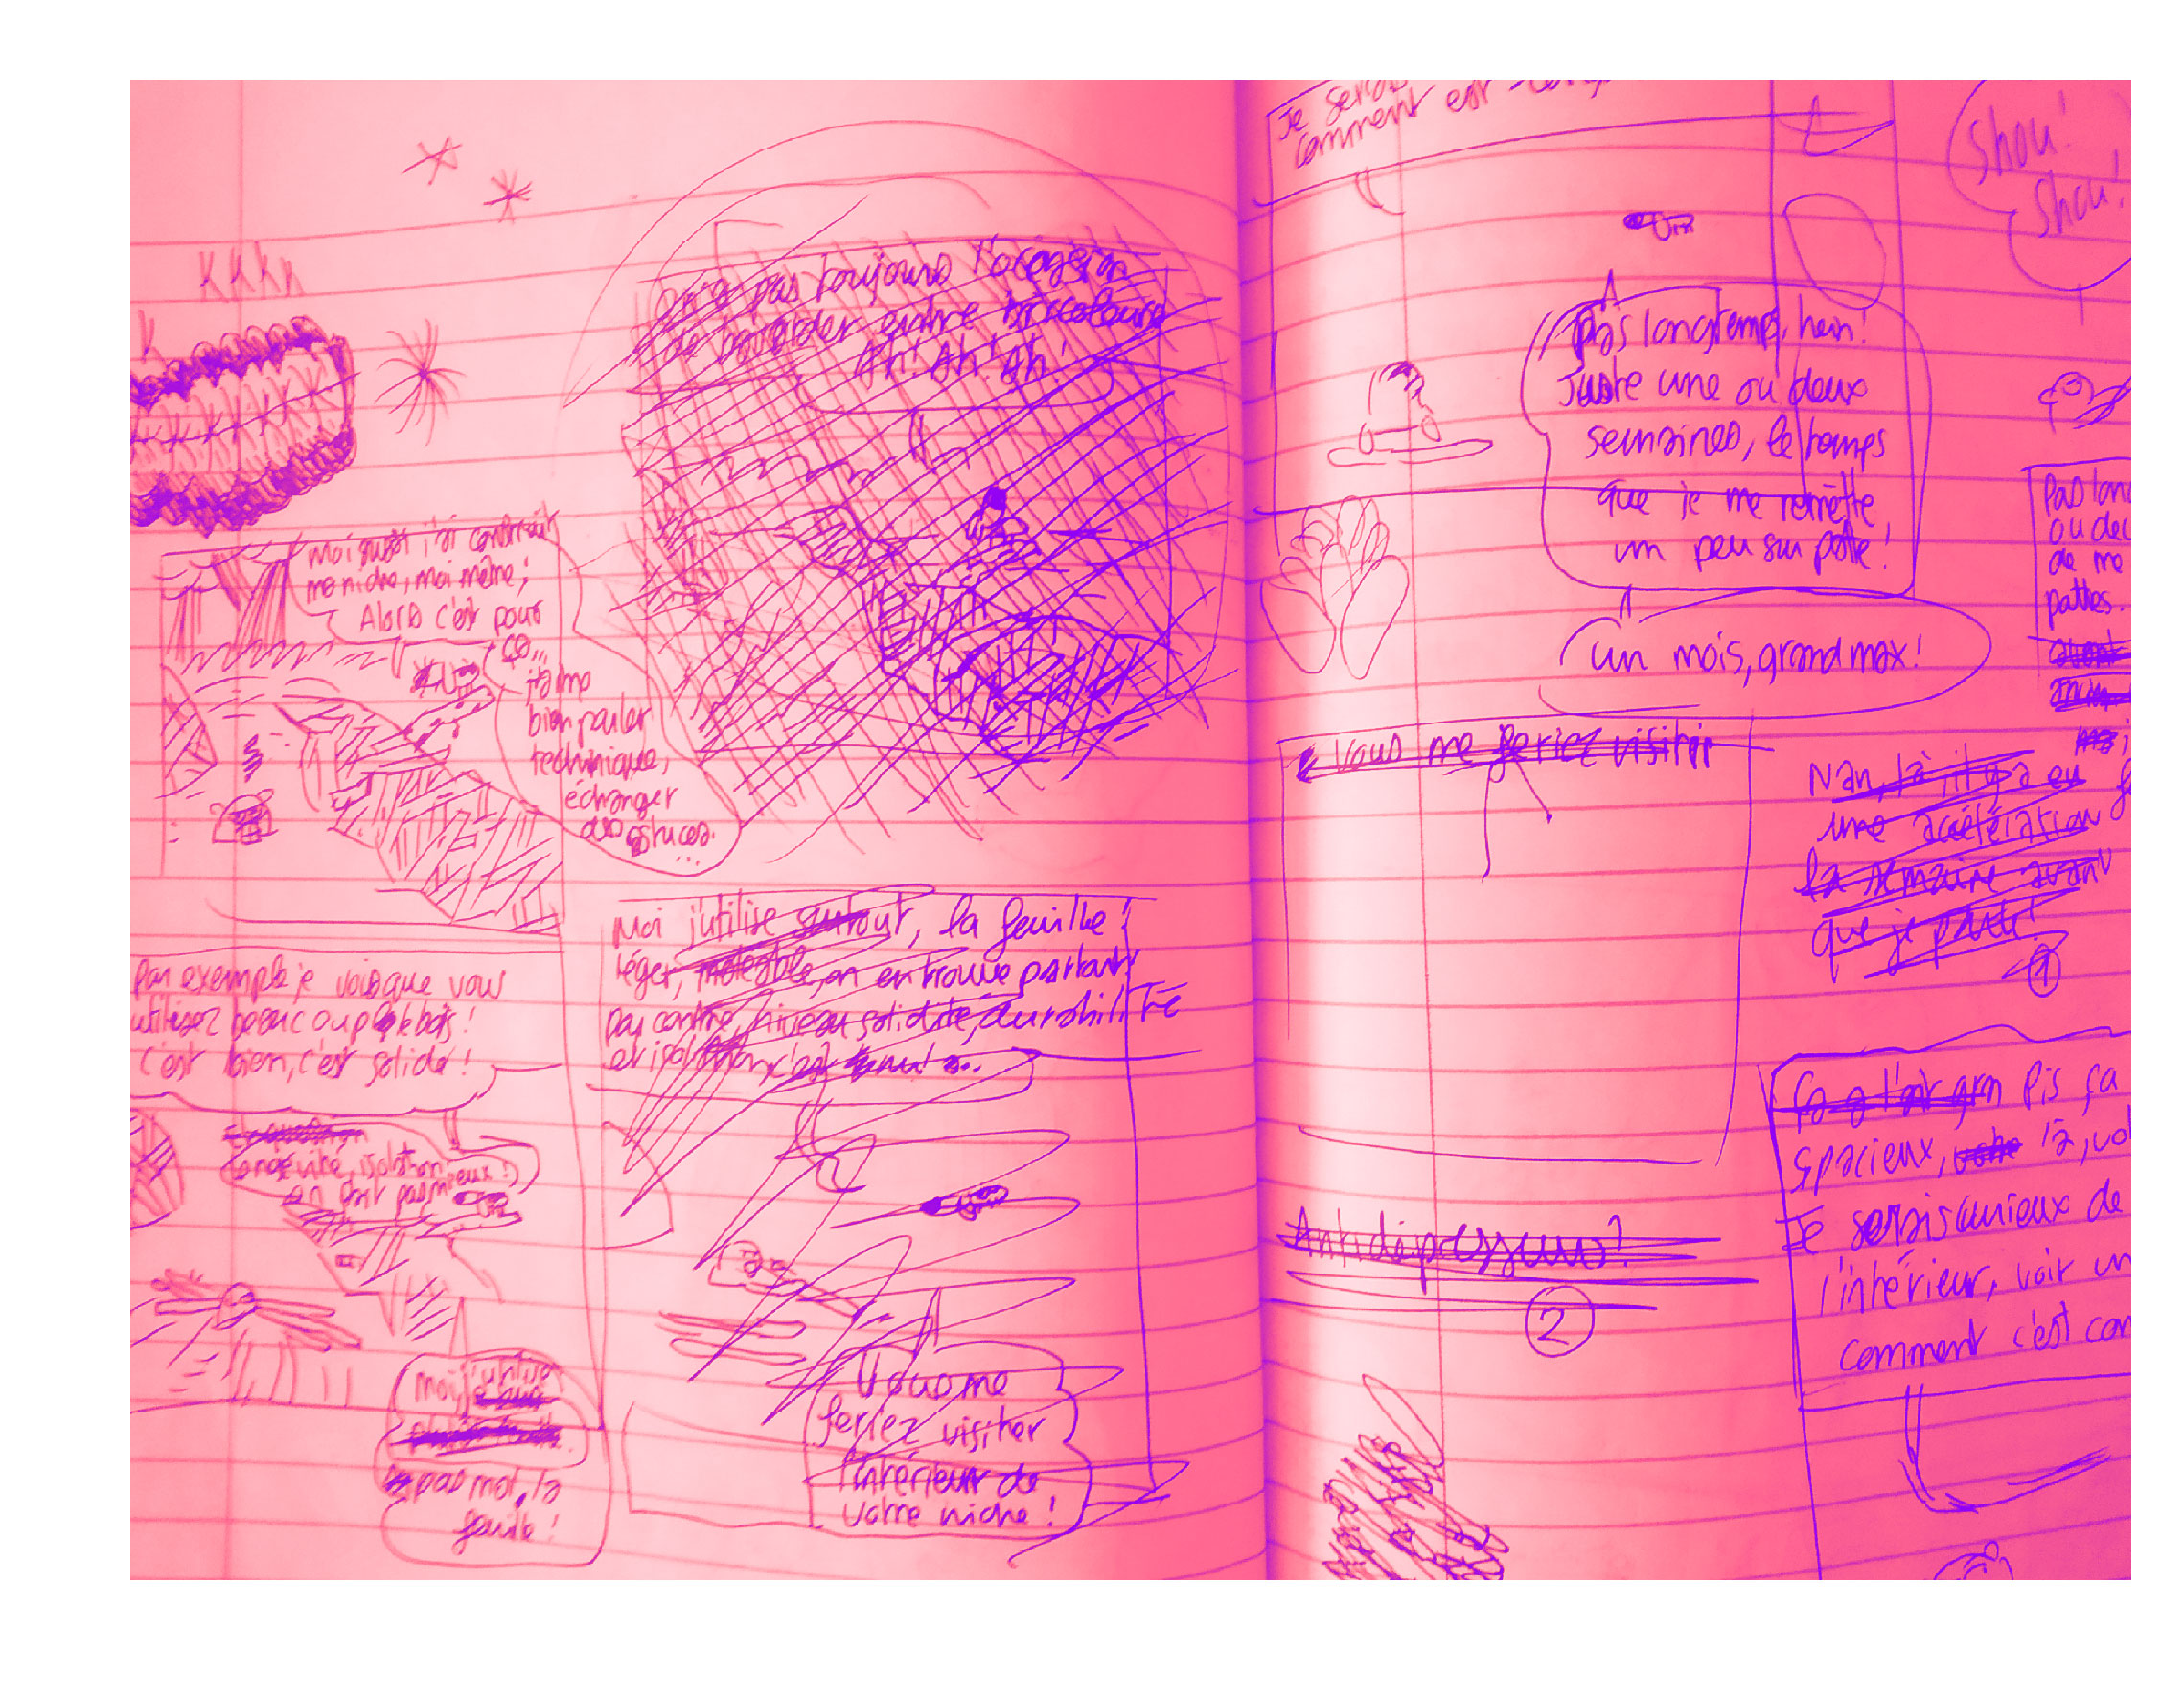 KKKK
On a pas toujours l'ocasion
de bavarder entre bricoleurs
Ah! Ah! Ah!
Moi aussi j'ai construit
ma niche, moi même;
Alors c'est pour
ça...
j'aime
bien parler
technique,
échanger
des astuces...
Par exemple je vois que vous
utilisez beaucoup le bois!
c'est bien, c'est solide!
Longévité, isolation
on fait pas mieux!
Moi j'utilise
pas mal, la
feuille!
Moi j'utilise surtout, la feuille!
léger, on en trouve partout
par contre, niveau solidité, durabilité
et isolation c'est
Vous me
feriez visiter
l'intérieur de
votre niche!
Je serais
comment est
Pas longtemps, hein!
Juste une ou deux
semaines, le temps
que je me remette
un peu sur patte!
un mois, grand max!
Vous me feriez visiter
Antidépresseurs?
2
Shou!
Shou!
Pas lon
ou deu
de me
pattes.
Nan, là il y a eu
une accélération
la semaine avant
que je parte!
1
ça a l'air gran Pis ça
spacieux, votre là, vo
Je serais curieux de
l'intérieur, voir un
comment c'est con